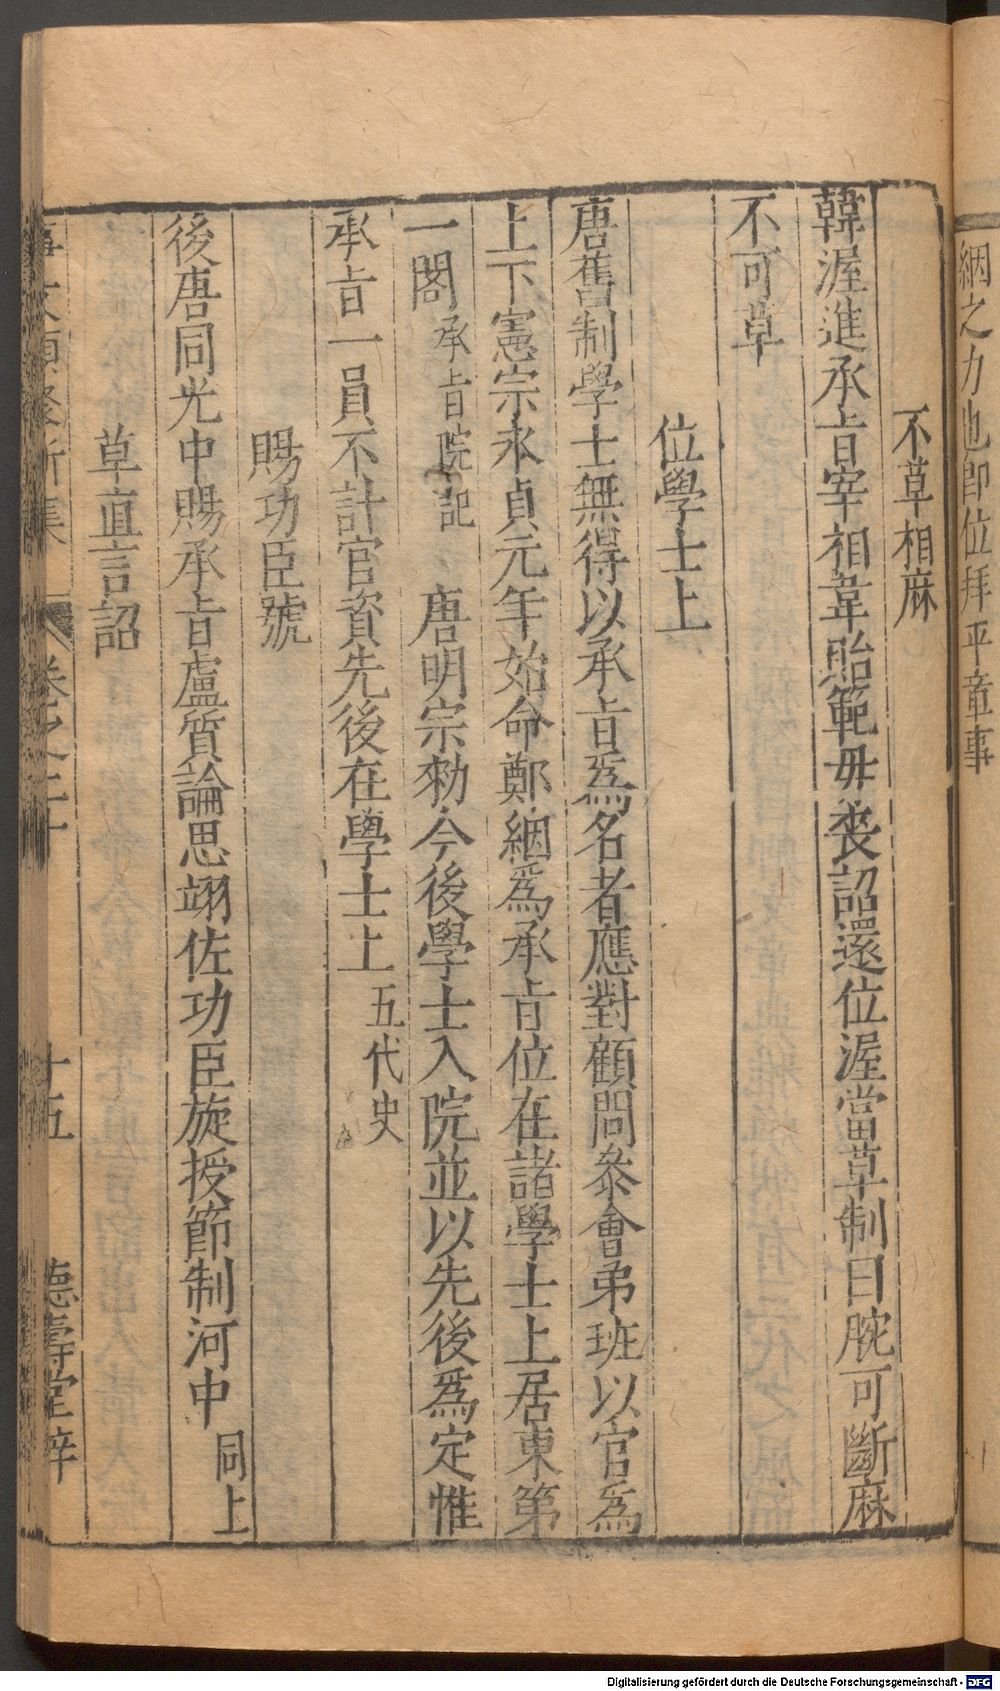 絪之力也即位拜平章事
不草相麻
韓渥進承旨宰相韋貽範毋喪詔還位渥當草制曰腕可斷麻
不可草
位學士上
唐舊制學士無得以承旨爲名者應對顧問參會弟班以官爲
上下憲宗永貞元年始命鄭絪爲承旨位在諸學士上居東第
一閣承旨院記 唐明宗勑今後學士入院並以先後爲定惟
承旨一員不計官資先後在學士上五代史
賜功臣號
後唐同光中賜承旨盧質論思翊佐功臣旋授節制河中同上
草直言詔
事文類聚新集 卷之二十 十五 德壽堂梓
Digitalisierung gefördert durch die Deutsche Forschungsgemeinschaft - DFG